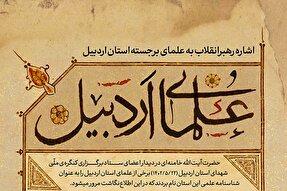 اشاره رهبر انقلاب به علمای برجسته استان اردبیل
علمای اردبیل
حضرت آیت‌الله خامنه‌ای در دیدار اعضای ستاد برگزاری کنگره‌ی ملّی
شهدای استان اردبیل (۱۴۰۲/۵/۲۲) برخی از علمای استان اردبیل را به عنوان
شناسنامه علمی این استان نام بردند که در این اطلاع‌نگاشت مرور می‌شود.